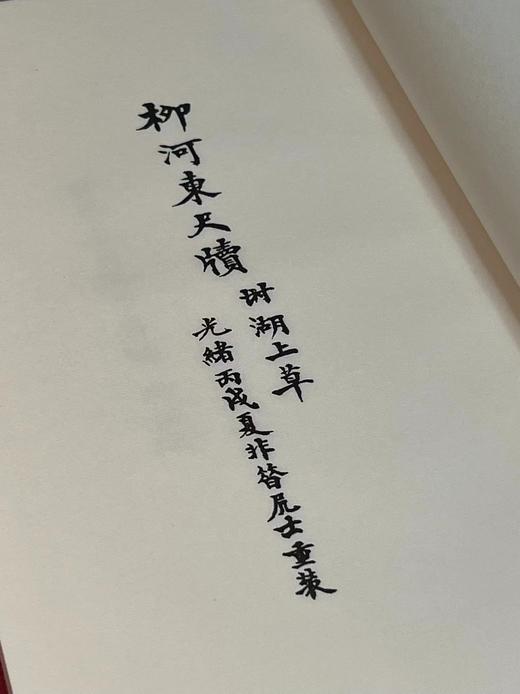 柳河東尺牘 坿湖上草
光緒丙戌夏非㫺凥士重裝